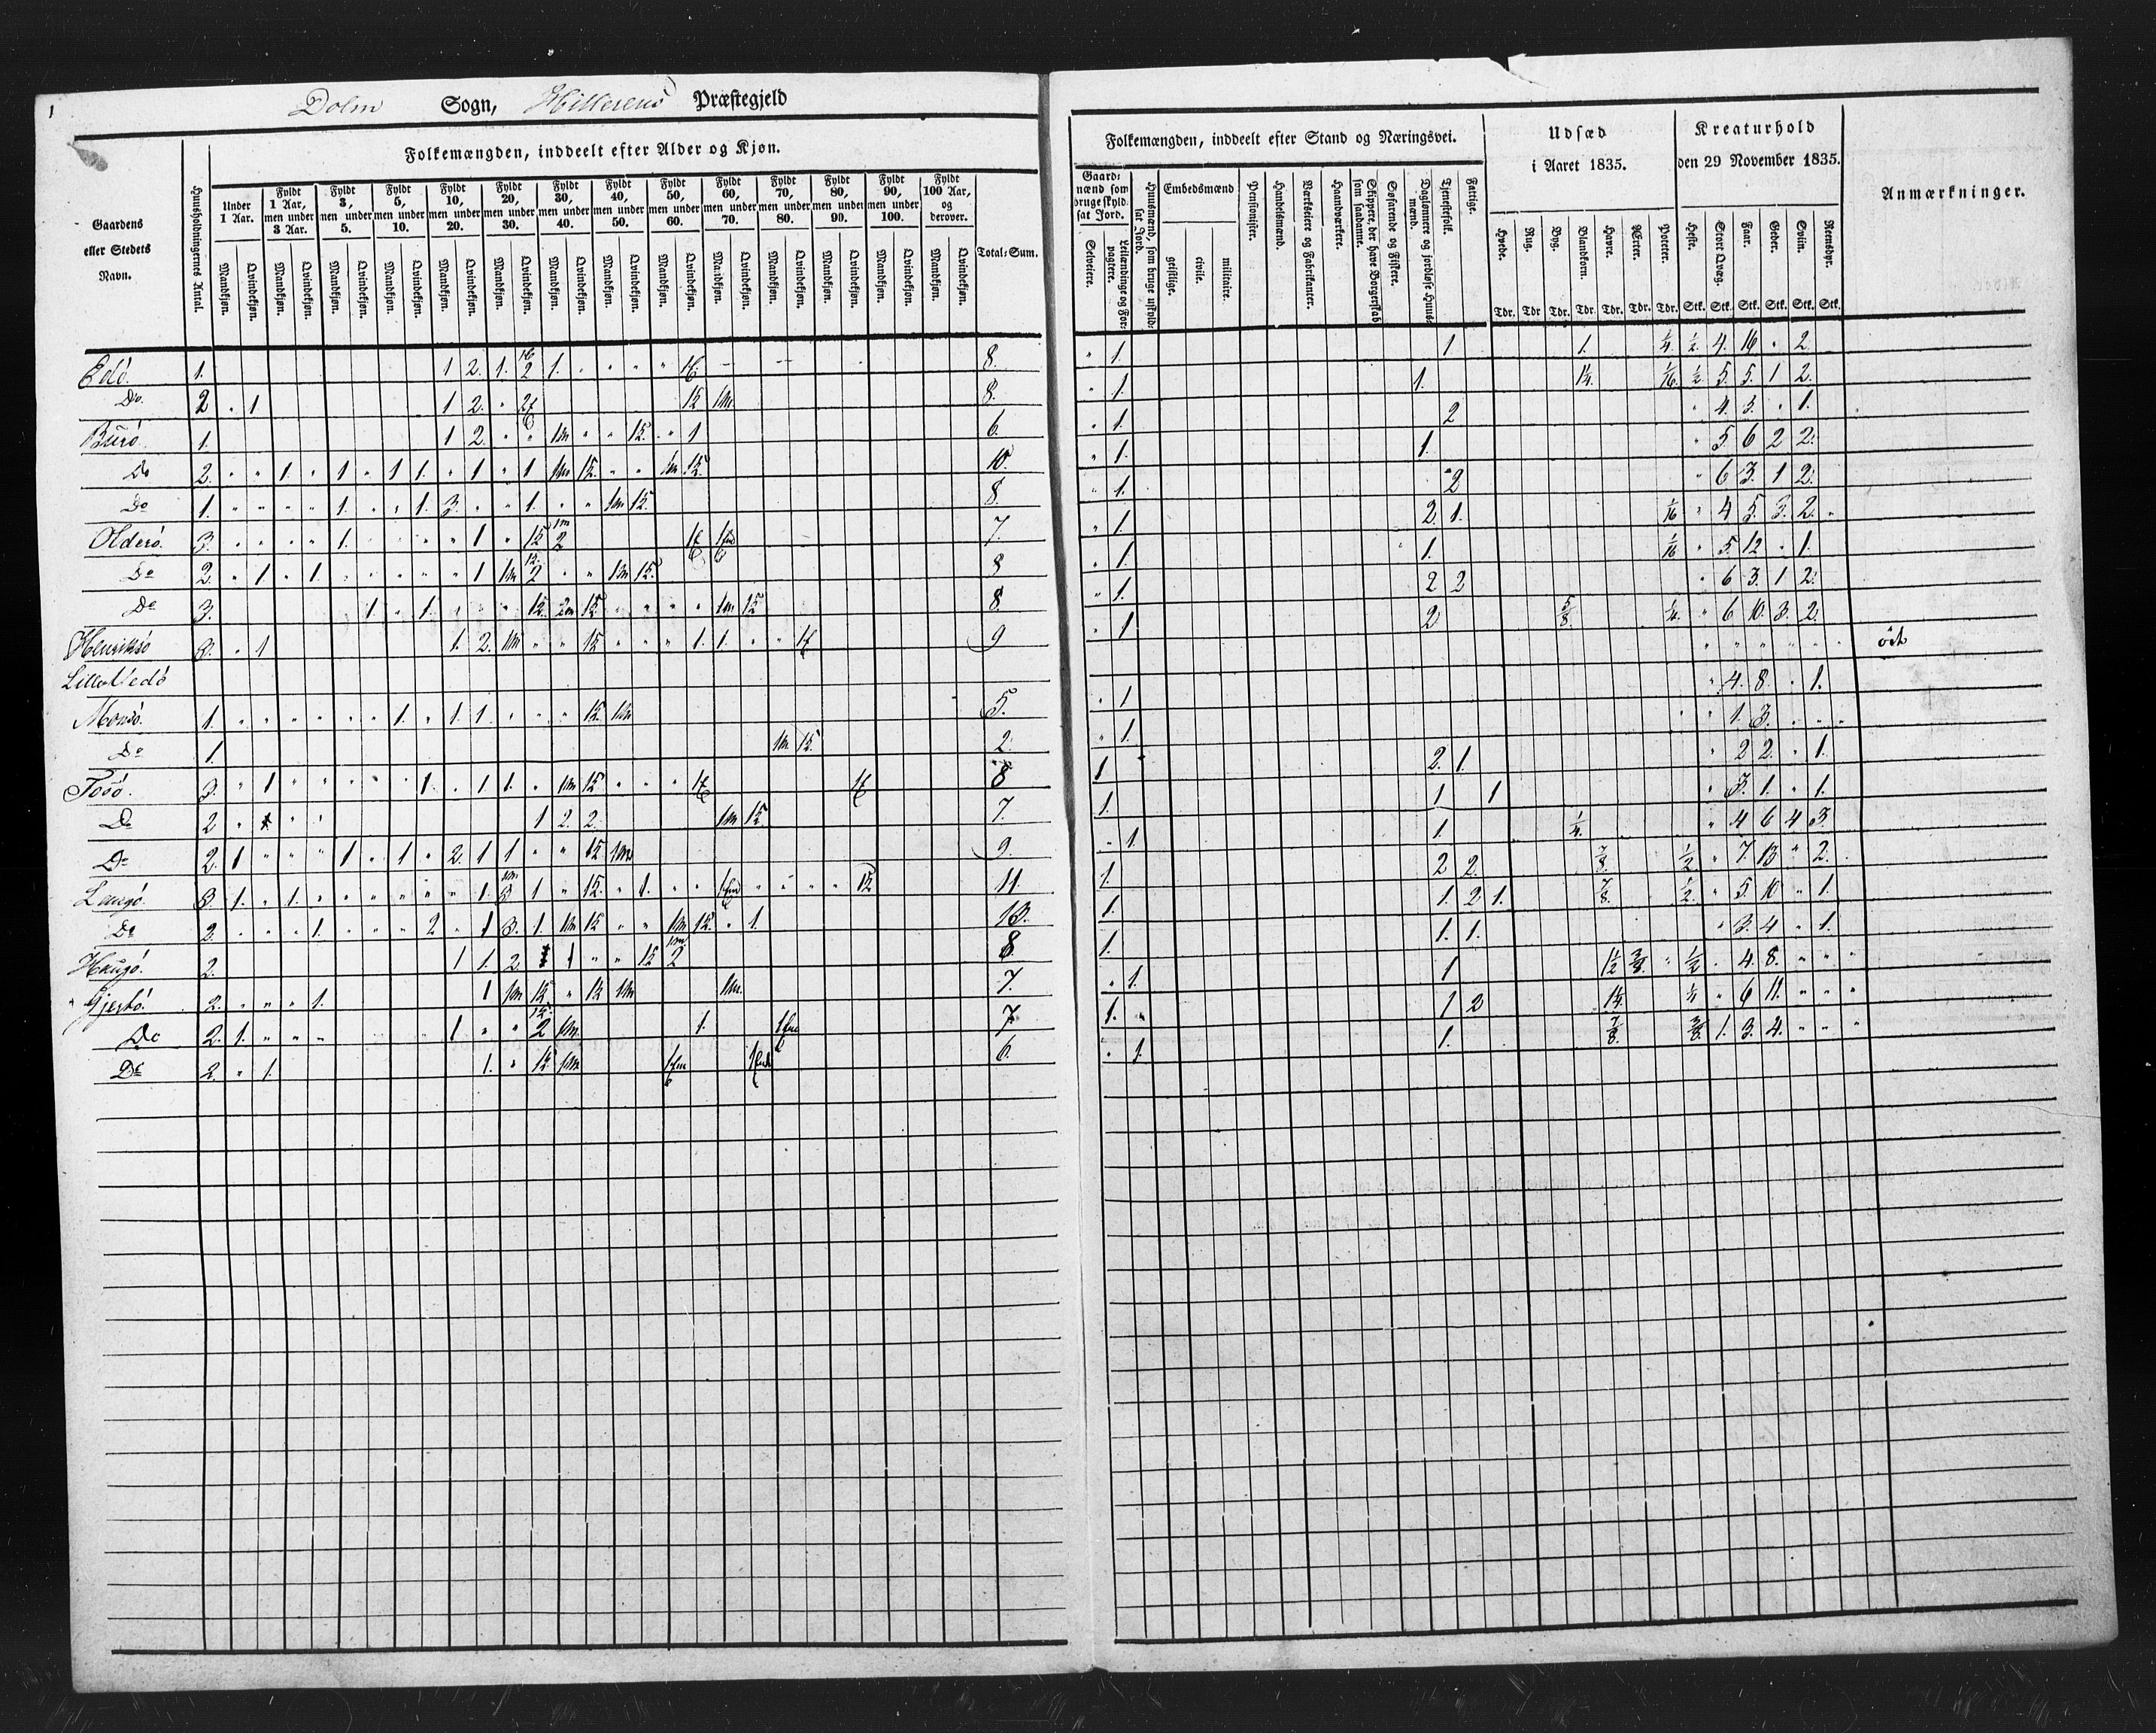 1
Dolm Sogn, Hitterens Præstegjeld
Gaardens eller Stedets Navn.
Huusholdningernes Antal.
Folkemængden, inddeelt efter Alder og Kjøn.
Under 1 Aar.
Fyldt 1 Aar, men under 3 Aar.
Fyldt 3, men under 5.
Fyldt 5, men under 10.
Fyldt 10, men under 20.
Fyldt 20, men under 30.
Fyldt 30, men under 40.
Fyldt 40, men under 50.
Fyldt 50, men under 60.
Fyldt 60, men under 70.
Fyldt 70, men under 80.
Fyldt 80, men under 90.
Fyldt 90, men under 100.
Fyldt 100 Aar, og derover.
Mandkjøn. Qvindekjøn. Mandkjøn. Qvindekjøn. Mandkjøn. Qvindekjøn. Mandkjøn. Qvindekjøn. Mandkjøn. Qvindekjøn. Mandkjøn. Qvindekjøn. Mandkjøn. Qvindekjøn. Mandkjøn. Qvindekjøn. Mandkjøn. Qvindekjøn. Mandkjøn. Qvindekjøn. Mandkjøn. Qvindekjøn. Mandkjøn. Qvindekjøn. Mandkjøn. Qvindekjøn. Mandkjøn. Qvindekjøn.
Total-Sum.
Edö. 1. 1 2. 1. 2 1. 8.
Do. 2 1 1 2. 8.
Burö. 1. 1 2. 1m 1 6.
Do 2. 1. 1 1 1. 1 1 1m 1m 10.
Do 1. 1. 1. 3. 1. 1m 8.
Olderö. 3. 1. 1 2 7.
Do 2. 1 1. 1 1m 2 1m 8
Do 3. 1 1. 2m 1m 8.
Henriksö 3. 1 1. 2. 1m 1. 1. 9
Lille Vedö
Monsö. 1. 1. 1. 1. 1m 5.
Do 1. 1m 2.
Tosö. 3. 1 1. 1 1. 1m 8
Do 2 1 2. 2. 1m 7.
Do 2. 1 1 1 2. 1 1 1m 9.
Langö. 3. 1. 1. 1. 3 1 1. 11.
Do 2. 1. 2 1 3. 1. 1m 1m 1. 13.
Haugö. 2. 1 1. 2 1 2 8.
Gjestö. 2. 1. 1 1m 1m 1m. 7.
Do 2. 1. 1 2 1m 1. 7.
Do 2. 1. 1. 1m 6.
Folkemængden, inddeelt efter Stand og Næringsvei.
Gaardmænd som bruge skyldsat Jord.
Selveiere.
Leilændinge og Forpagtere.
Huusmænd, som bruge uskyldsat Jord.
Embedsmænd
geistlige.
civile.
militaire.
Pensionister.
Handelsmænd.
Værkseiere og Fabrikanter.
Haandværkere.
Skippere, der have Borgerskab som saadanne.
Søfarende og Fiskere.
Daglønnere og jordløse Huusmænd.
Tjenestefolk.
Fattige.
Udsæd i Aaret 1835.
Hvede. Rug. Byg. Blandkorn. Havre. Ærter. Poteter.
Tdr. Tdr Tdr. Tdr. Tdr. Tdr. Tdr.
Kreaturhold den 29 November 1835.
Heste. Stort Qvæg. Faar. Geder. Sviin. Rensdyr.
Stk. Stk. Stk. Stk. Stk. Stk.
Anmærkninger.
" 1. 1 1. 1/4 1/2 4. 16 " 2.
" 1. 1. 1 1/4. 1/16 1/2 5. 5. 1 2.
" 1. 2 " 4. 3. " 1.
" 1. 1. " 5 6 2 2.
" 1. 2 " 6 3. 1 2.
" 1 2. 1. 1/16 " 4 5. 3. 2. "
" 1. 1. 1/16 " 5. 12 " 1.
" 1. 2 2 " 6 3. 1 2.
" 1 2 5/8. 1/4. " 6 10. 3. 2.
" " " " " " öde
" 1 " 4. 8. " 1.
" 1. " 1. 3. " " "
1 2. 1. " 2 2. " 1.
1. 1 1 " 3. 1. " 1.
" 1 1. 1/4. " 4 6 4 3.
1. 2 2. 7/8. 1/2 " 7. 13 " 2.
1. 1. 2 1. 7/8. 1/2 " 5. 10 " 1.
1. 1. 1. " 3. 4 " 1.
" 1. 1 1 1/2 3/8. 1/2 " 4. 8. " " "
1. " 1 2 1 1/4. 1/4 " 6 11. " " "
" 1. 1. 7/8. 3/8. 1. 3. 4. " " "